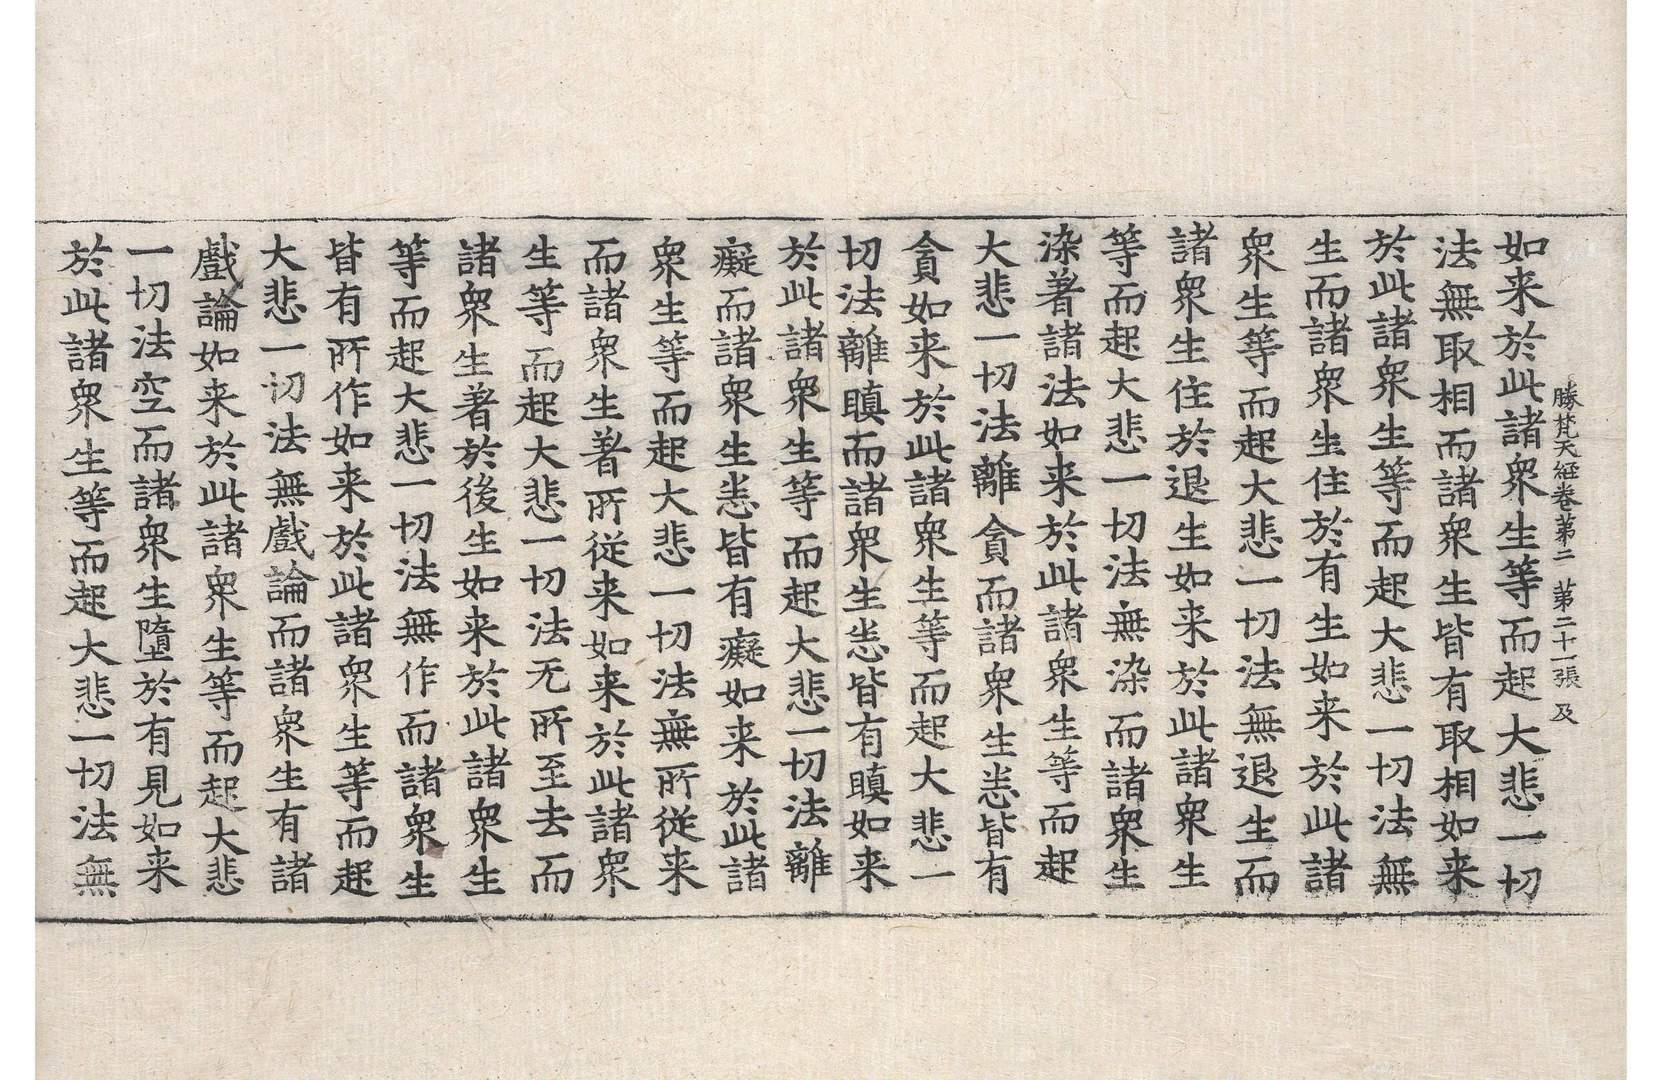 勝梵天経卷苐二 苐二十一張 及
如来於此諸衆生等而起大悲一切
法無取相而諸衆生皆有取相如来
於此諸衆生等而起大悲一切法無
生而諸衆生住於有生如来於此諸
衆生等而起大悲一切法無退生而
諸衆生住於退生如来於此諸衆生
等而起大悲一切法無染而諸衆生
染著諸法如来於此諸衆生等而起
大悲一切法離貪而諸衆生悉皆有
貪如来於此諸衆生等而起大悲一
切法離瞋而諸衆生悉皆有瞋如来
於此諸衆生等而起大悲一切法離
癡而諸衆生悉皆有癡如来於此諸
衆生等而起大悲一切法無所從来
而諸衆生著所從来如来於此諸衆
生等而起大悲一切法无所至去而
諸衆生著於後生如来於此諸衆生
等而起大悲一切法無作而諸衆生
皆有所作如来於此諸衆生等而起
大悲一切法無戲論而諸衆生有諸
戲論如来於此諸衆生等而起大悲
一切法空而諸衆生墮於有見如来
於此諸衆生等而起大悲一切法無